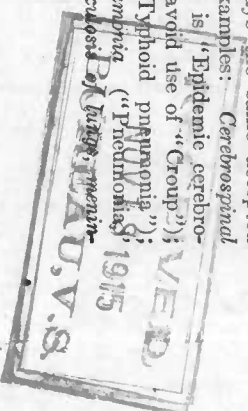 xamples: Cerebrospinal
is "Epidemic cerebro-
avoid use of "Croup");
Typhoid pneumonia");
monia ("Pneumonia,
culosis of lungs, menin-
VED
NOV
1915
BUREAU, V.S.